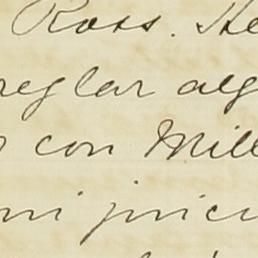 Ross. He
reglar alg
con Mill
mi juici